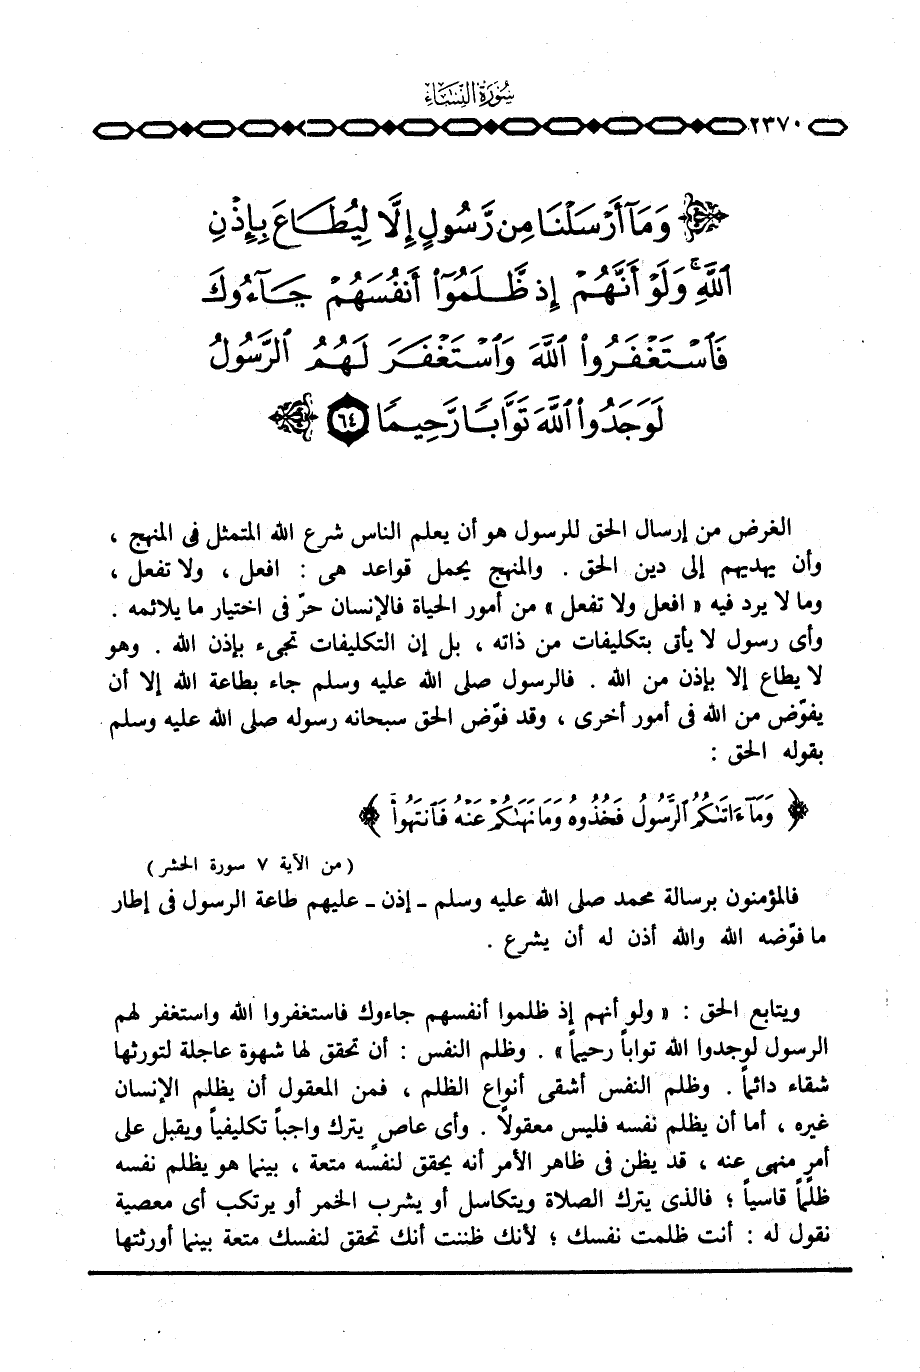 سُورَةُ النِّسَاءِ
٢٣٧٠
﴿ وَمَآ أَرْسَلْنَا مِن رَّسُولٍ إِلَّا لِيُطَاعَ بِإِذْنِ
ٱللَّهِ ۚ وَلَوْ أَنَّهُمْ إِذ ظَّلَمُوٓا۟ أَنفُسَهُمْ جَآءُوكَ
فَٱسْتَغْفَرُوا۟ ٱللَّهَ وَٱسْتَغْفَرَ لَهُمُ ٱلرَّسُولُ
لَوَجَدُوا۟ ٱللَّهَ تَوَّابًا رَّحِيمًا ٦٤ ﴾
الغرض من إرسال الحق للرسول هو أن يعلم الناس شرع الله المتمثل فى المنهج ،
وأن يهديهم إلى دين الحق . والمنهج يحمل قواعد هى : افعل ، ولا تفعل ،
وما لا يرد فيه « افعل ولا تفعل » من أمور الحياة فالإنسان حرّ فى اختيار ما يلائمه .
وأى رسول لا يأتى بتكليفات من ذاته ، بل إن التكليفات تجىء بإذن الله . وهو
لا يطاع إلا بإذن من الله . فالرسول صلى الله عليه وسلم جاء بطاعة الله إلا أن
يفوّض من الله فى أمور أخرى ، وقد فوّض الحق سبحانه رسوله صلى الله عليه وسلم
بقوله الحق :
﴿ وَمَآ ءَاتَىٰكُمُ ٱلرَّسُولُ فَخُذُوهُ وَمَا نَهَىٰكُمْ عَنْهُ فَٱنتَهُوا۟ ﴾
( من الآية ٧ سورة الحشر )
فالمؤمنون برسالة محمد صلى الله عليه وسلم ـ إذن ـ عليهم طاعة الرسول فى إطار
ما فوّضه الله والله أذن له أن يشرع .
ويتابع الحق : « ولو أنهم إذ ظلموا أنفسهم جاءوك فاستغفروا الله واستغفر لهم
الرسول لوجدوا الله تواباً رحيماً » . وظلم النفس : أن تحقق لها شهوة عاجلة لتورثها
شقاء دائماً . وظلم النفس أشقى أنواع الظلم ، فمن المعقول أن يظلم الإنسان
غيره ، أما أن يظلم نفسه فليس معقولاً . وأى عاصٍ يترك واجباً تكليفياً ويقبل على
أمر منهى عنه ، قد يظن فى ظاهر الأمر أنه يحقق لنفسه متعة ، بينما هو يظلم نفسه
ظلماً قاسياً ؛ فالذى يترك الصلاة ويتكاسل أو يشرب الخمر أو يرتكب أى معصية
نقول له : أنت ظلمت نفسك ؛ لأنك ظننت أنك تحقق لنفسك متعة بينما أورثتها